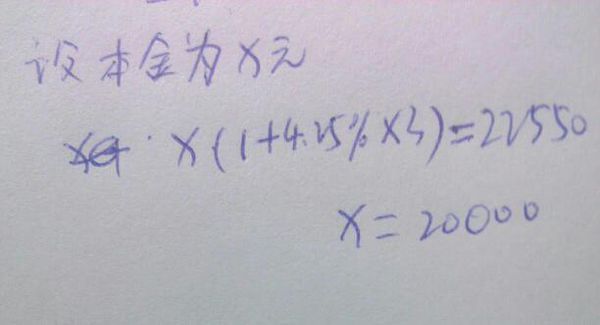 设本金为X元
X(1+4.25%×3)=22550
X=20000